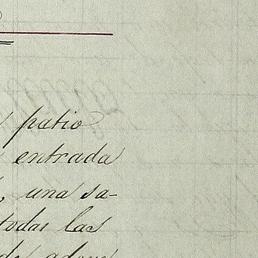 patio
entrada
, una sa-
todas las